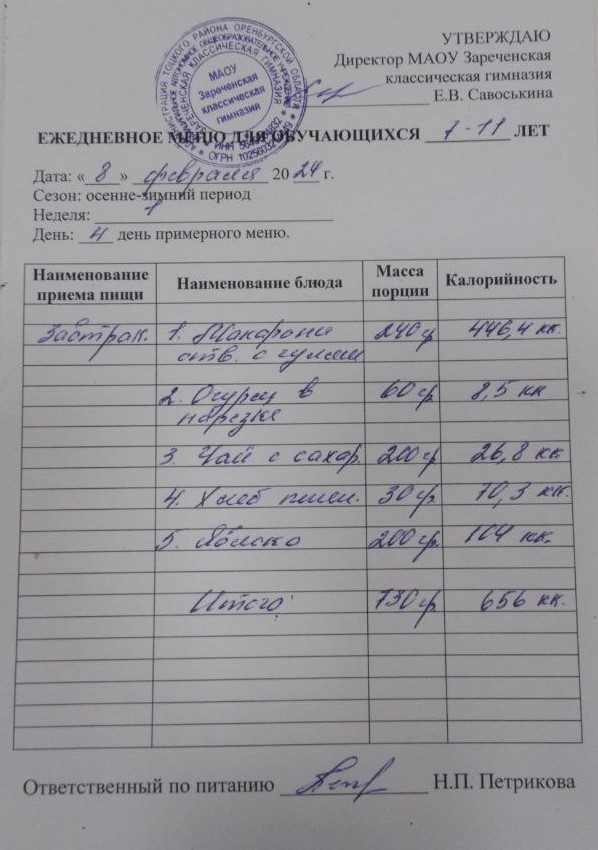 УТВЕРЖДАЮ
Директор МАОУ Зареченская
классическая гимназия
Е.В. Савоськина
АДМИНИСТРАЦИЯ ТОЦКОГО РАЙОНА ОРЕНБУРГСКОЙ ОБЛАСТИ
МУНИЦИПАЛЬНОЕ АВТОНОМНОЕ ОБЩЕОБРАЗОВАТЕЛЬНОЕ УЧРЕЖДЕНИЕ
ЗАРЕЧЕНСКАЯ КЛАССИЧЕСКАЯ ГИМНАЗИЯ
МАОУ
Зареченская
классическая
гимназия
ИНН
ОГРН
ЕЖЕДНЕВНОЕ МЕНЮ ДЛЯ ОБУЧАЮЩИХСЯ 7-11 ЛЕТ
Дата: «8» февраля 2024 г.
Сезон: осенне-зимний период
Неделя: 1
День: 4 день примерного меню.
Наименование приема пищи Наименование блюда Масса порции Калорийность
Завтрак. 1. Макароны 240 гр 446,4 кк.
отв. с гуляш
2. Огурец в 60 гр 8,5 кк
нарезке
3. Чай с сахар. 200 гр 26,8 кк.
4. Хлеб пшен. 30 гр 70,3 кк.
5. Яблоко 200 гр. 104 кк.
Итого: 730 гр 656 кк.
Ответственный по питанию Н.П. Петрикова